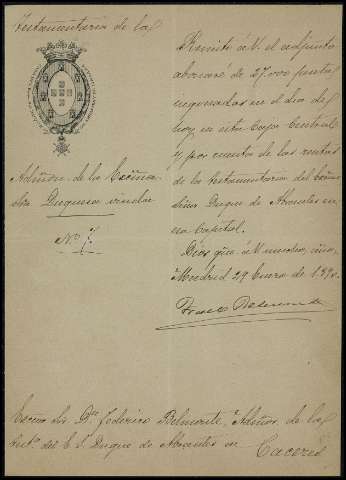 Testamentaría de la
Admon. de la Excma.
Sra Duquesa viuda
Nº 7.
Remito á V. el adjunto
abonaré de 27.000 pesetas
ingresadas en el día de
hoy en esta Caja Central
y por cuenta de las rentas
de la testamentaría del Excmo
Señor Duque de Abrantes en
esa Capital.
Dios gue. á V. muchos años.
Madrid 29 Enero de 189
Sr. Dn. Federico Belmonte, Admor. de la
Test.ª del E. S. Duque de Abrantes en
Caceres